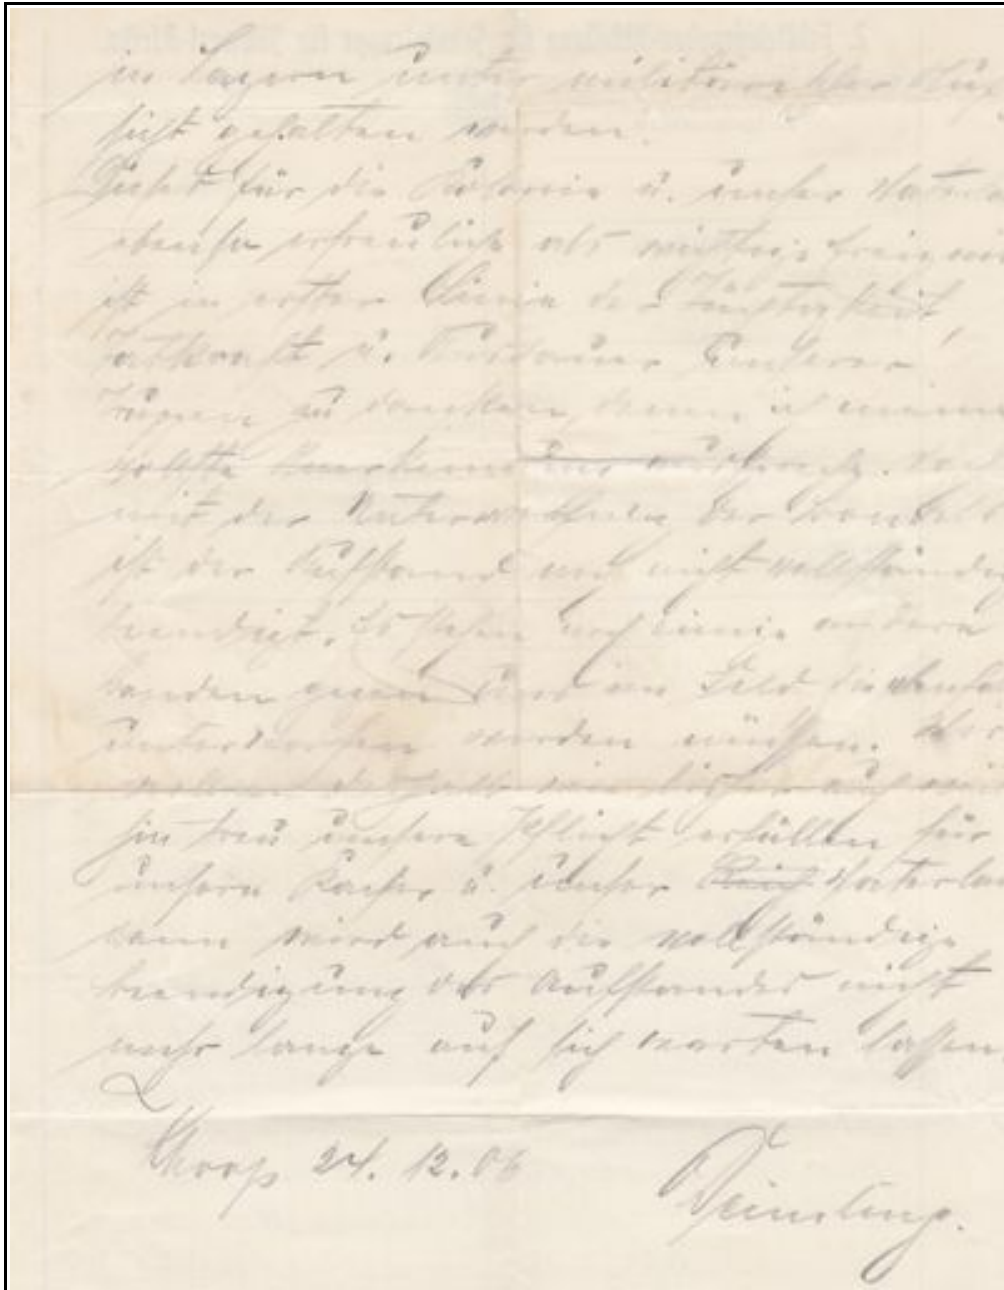 in Lagern unter militärischer Auf
sicht gehalten werden.
Dieses für die Kolonie u. unser Vaterla
ebenso erfreuliche als wichtige Ereignis
ist in erster Linie der
Tatkraft u. Ausdauer unserer
Truppen zu danken, denen ich meine
mit der Unterwerfung der Bondels
ist der Aufstand noch nicht vollständig
beendigt. Es stehen noch einige andere
Banden gegen uns im Feld die
unterworfen werden müssen. Wir
wollen deshalb wie bisher auch
hin treu unsere Pflicht erfüllen für
unsern Kaiser u. unser Reich Vaterlan
dann wird auch die vollständige
Beendigung des Aufstandes nicht
mehr lange auf sich warten lassen
24. 12. 06
Deimling.